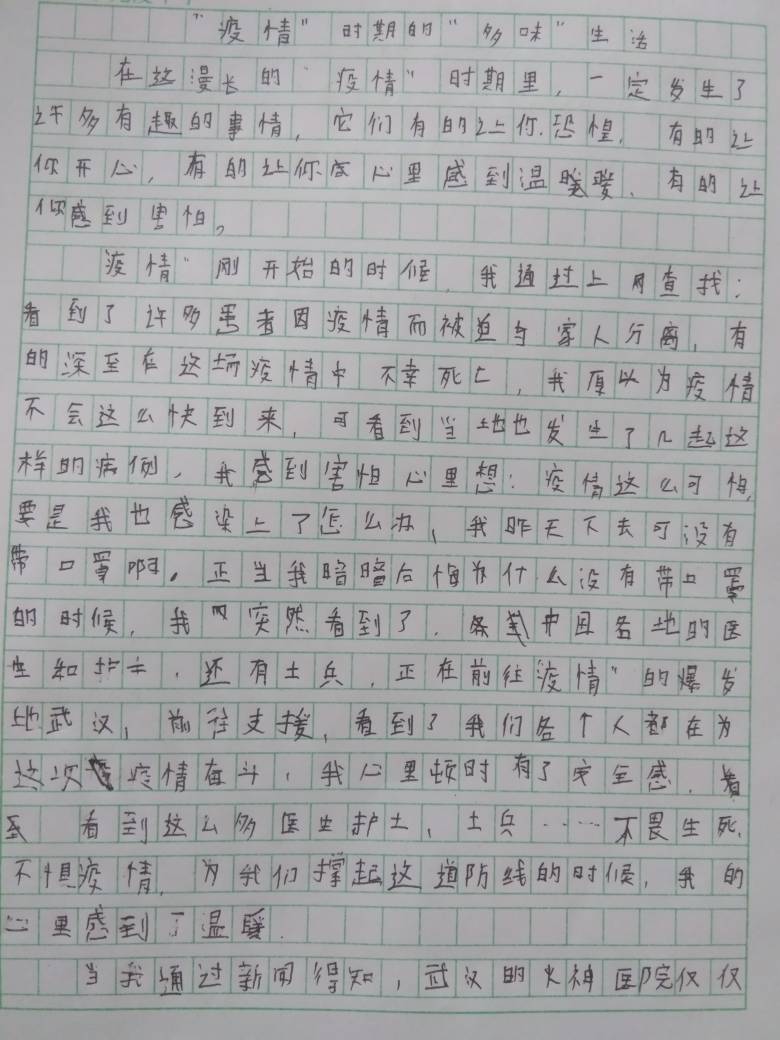 "疫情"时期的"多味"生活
在这漫长的"疫情"时期里,一定发生了
许多有趣的事情,它们有的让你恐惶,有的让
你开心,有的让你心里感到温暖暖、有的让
你感到害怕。
疫情"刚开始的时候,我通过上网查找:
看到了许多患者因疫情而被迫与家人分离,有
的深至在这场疫情中不幸死亡,我原以为疫情
不会这么快到来,可看到当地也发生了几起这
样的病例,我感到害怕心里想:疫情这么可怕,
要是我也感染上了怎么办、我昨天下去可没有
带口罩啊。正当我暗暗后悔为什么没有带口罩
的时候,我突然看到了,来自中国各地的医
生和护士,还有士兵,正在前往疫情"的爆发
地武汉,前往支援,看到了我们各个人都在为
这次疫情奋斗,我心里顿时有了安全感,看
到 看到这么多医生护士、士兵……不畏生死、
不惧疫情,为我们撑起这道防线的时候,我的
心里感到了温暖.
当我通过新闻得知,武汉的火神医院仅仅